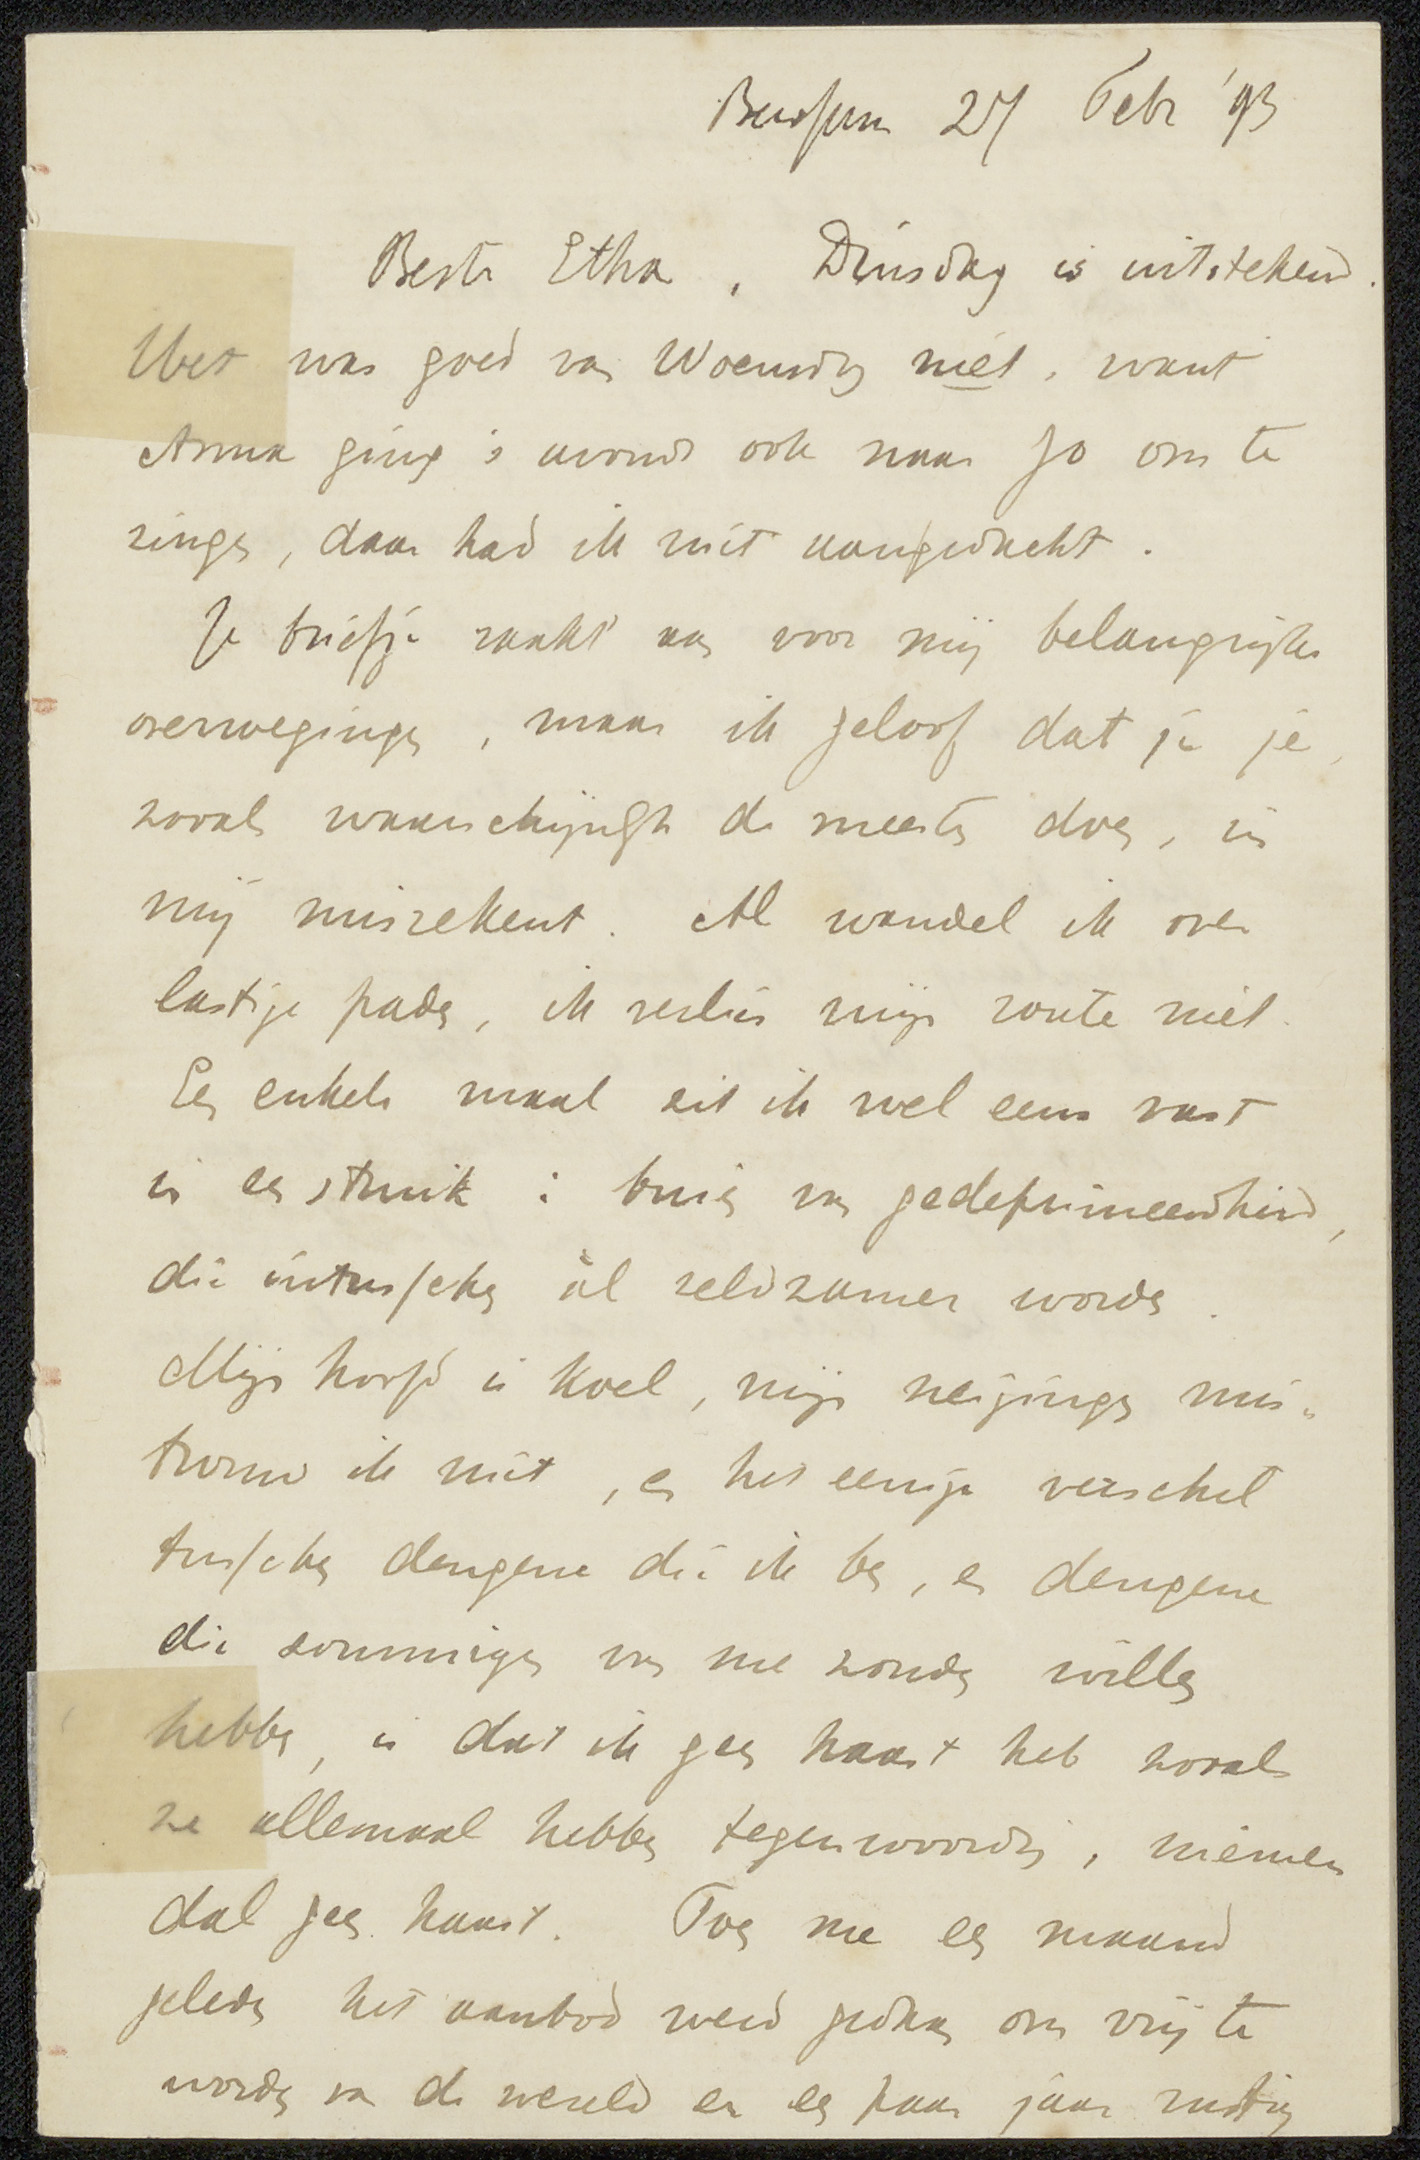 Bussum 27 Febr '93
Beste Etha, Dinsdag is uitstekend.
Het was goed van Woensdag niet, want
Anna ging 's avonds ook naar Jo om te
zingen, daar had ik niet aangedacht.
Je briefje raakt aan voor mij belangrijke
overwegingen, maar ik geloof dat je je,
zooals waarschijnlijk de meesten doen, in
mij misrekent. Al wandel ik over
lastige paden, ik verlies mijn route niet.
Een enkele maal zit ik wel eens vast
in een struik: buien van gedeprimeerdheid,
die intusschen àl zeldzamer worden.
Mijn hoofd is koel, mijn neigingen mis-
trouw ik niet, en het eenige verschil
tusschen dengene die ik ben, en dengene
die sommigen van me zouden willen
hebben, is dat ik geen haast heb zooals
ze allemaal hebben tegenwoordig, niemen
dal geen haast. Toen me een maand
geleden het aanbod werd gedaan om vrij te
worden van de wereld en een paar jaar rustig